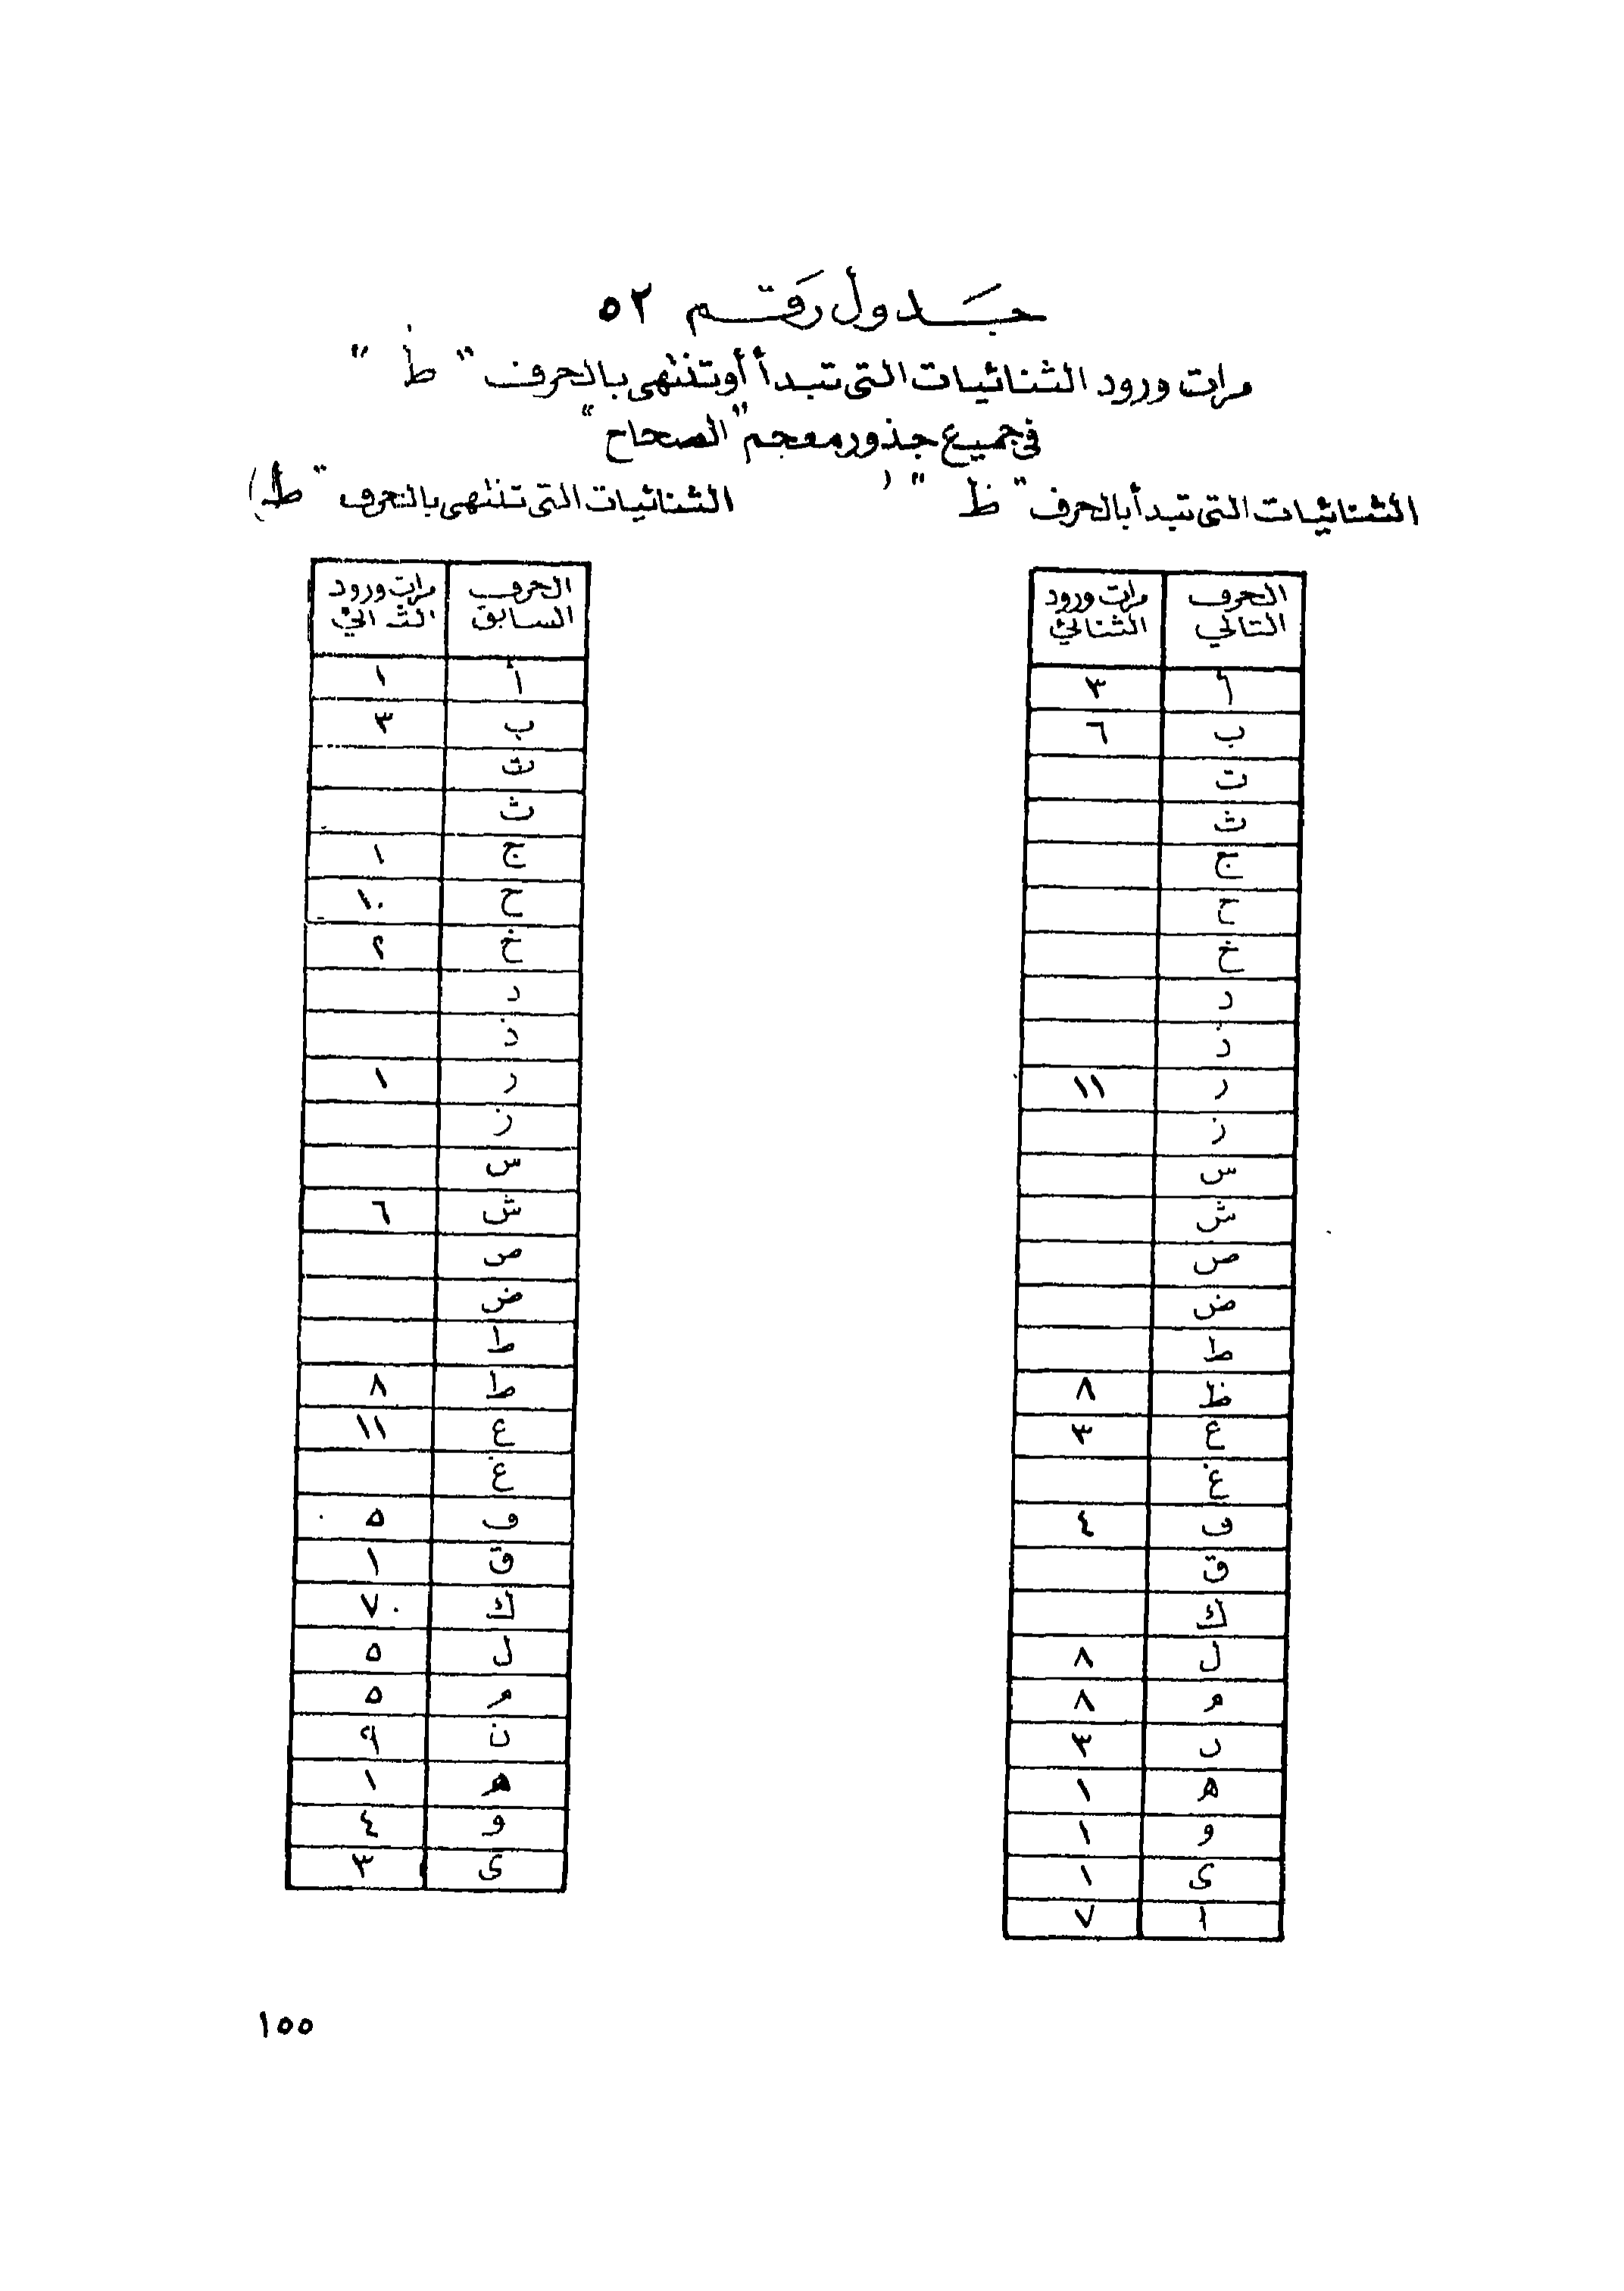 جدول رقم ٥٢
مرات ورود الثنائيات التى تبدأ أو تنتهى بالحرف " ظ "
فى جميع جذور معجم "الصحاح"
الثنائيات التى تبدأ بالحرف " ظ "
الحرف التالي | مرات ورود الثنائي
أ | ٣
ب | ٦
ت
ث
ج
ح
خ
د
ذ
ر | ١١
ز
س
ش
ص
ض
ط
ظ | ٨
ع | ٣
غ
ف | ٤
ق
ك
ل | ٨
م | ٨
ن | ٣
ه | ١
و | ١
ى | ١
ا | ٧
الثنائيات التى تنتهى بالحرف " ظ "
الحرف السابق | مرات ورود الثنائي
أ | ١
ب | ٣
ت
ث
ج | ١
ح | ١٠
خ | ٢
د
ذ
ر | ١
ز
س
ش | ٦
ص
ض
ط
ط | ٨
ع | ١١
غ
ف | ٥
ق | ١
ك | ٧
ل | ٥
م | ٥
ن | ٩
ه | ١
و | ٤
ى | ٣
١٥٥